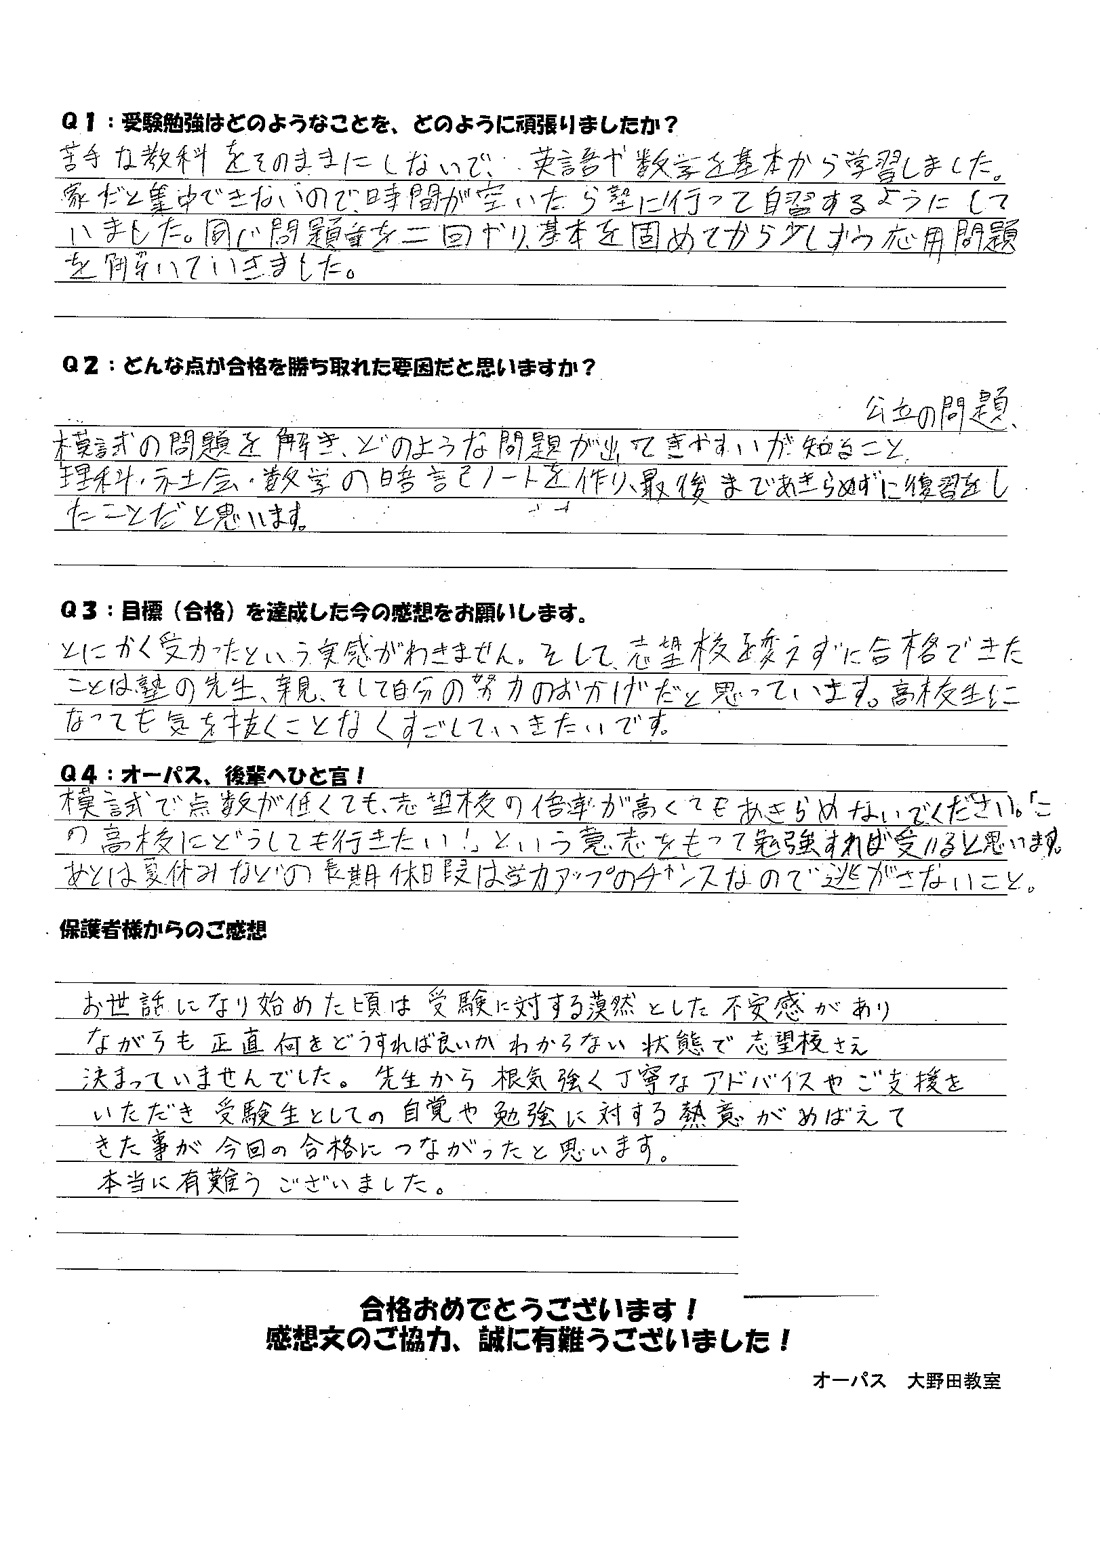 Q1：受験勉強はどのようなことを、どのように頑張りましたか？
苦手な教科をそのままにしないで、英語や数学を基本から学習しました。
家だと集中できないので、時間が空いたら塾に行って自習するようにして
いました。同じ問題集を二回やり、基本を固めてから少しずつ応用問題
を解いていきました。
Q2：どんな点が合格を勝ち取れた要因だと思いますか？
公立の問題、
模試の問題を解き、どのような問題が出てきやすいか知ること、
理科・社会・数学の暗記ノートを作り、最後まであきらめずに復習をし
たことだと思います。
Q3：目標（合格）を達成した今の感想をお願いします。
とにかく受かったという実感がわきません。そして、志望校を変えずに合格できた
ことは塾の先生、親、そして自分の努力のおかげだと思っています。高校生に
なっても気を抜くことなくすごしていきたいです。
Q4：オーパス、後輩へひと言！
模試で点数が低くても、志望校の倍率が高くてもあきらめないでください。「こ
の高校にどうしても行きたい！」という意志をもって勉強すれば受かると思います。
あとは夏休みなどの長期休日段は学力アップのチャンスなので逃がさないこと。
保護者様からのご感想
お世話になり始めた頃は受験に対する漠然とした不安感があり
ながらも正直何をどうすれば良いかわからない状態で志望校さえ
決まっていませんでした。先生から根気強く丁寧なアドバイスやご支援を
いただき受験生としての自覚や勉強に対する熱意がめばえて
きた事が今回の合格につながったと思います。
本当に有難うございました。
合格おめでとうございます！
感想文のご協力、誠に有難うございました！
オーパス 大野田教室